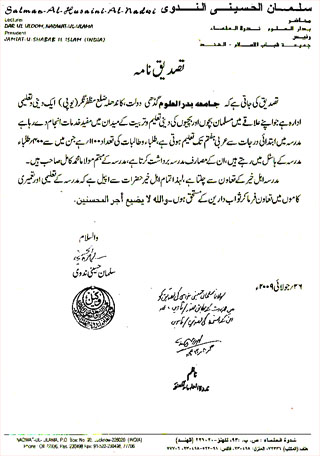 Salman-Al-Husaini-Al-Nadwi
سلمان الحسيني الندوي
Lecturer
DAR-UL-ULOOM, NADWAT-UL-ULAMA
محاضر
بدار العلوم - ندوة العلماء
President
JAMIAT-U-SHABAB IL ISLAM (INDIA)
ورئيس
جمعية شباب الإسلام - الهند
تصدیق نامہ
تصدیق کی جاتی ہے کہ جامعہ بدر العلوم گڑھی دولت، کاندھلہ ضلع مظفرنگر (یوپی) ایک دینی و تعلیمی
ادارہ ہے جو اپنے علاقے میں مسلمان بچوں اور بچیوں کی دینی تعلیم و تربیت کے میدان میں مفید خدمات انجام دے رہا ہے
مدرسہ میں ابتدائی درجات سے عربی ہفتم تک تعلیم ہوتی ہے، طلباء و طالبات کی تعداد ۱۱۰۰ ہے جن میں سے ۳۰۰ طلباء
مدرسہ کے ہاسٹل میں رہتے ہیں، ان کے مصارف مدرسہ برداشت کرتا ہے، مدرسہ کے مہتمم مولانا محمد کامل صاحب ہیں۔
مدرسہ اہل خیر کے تعاون سے چلتا ہے، لہذا تمام اہل خیر حضرات سے اپیل ہے کہ مدرسہ کے تعلیمی اور تعمیری
کاموں میں تعاون فرما کر ثواب دارین کے مستحق ہوں۔ والله لا يضيع أجر المحسنين.
والسلام
سلمان حسینی ندوی
۲۶/جولائی ۲۰۰۹ء
ناظم
ندوة العلماء لکھنؤ
NADWAT-UL-ULAMA, P.O. Box No. 93, Lucknow-226020 (INDIA)
ندوة العلماء : ص.ب: ٩٣، لكهنؤ - ٢٢٦٠٢٠ (الهند)